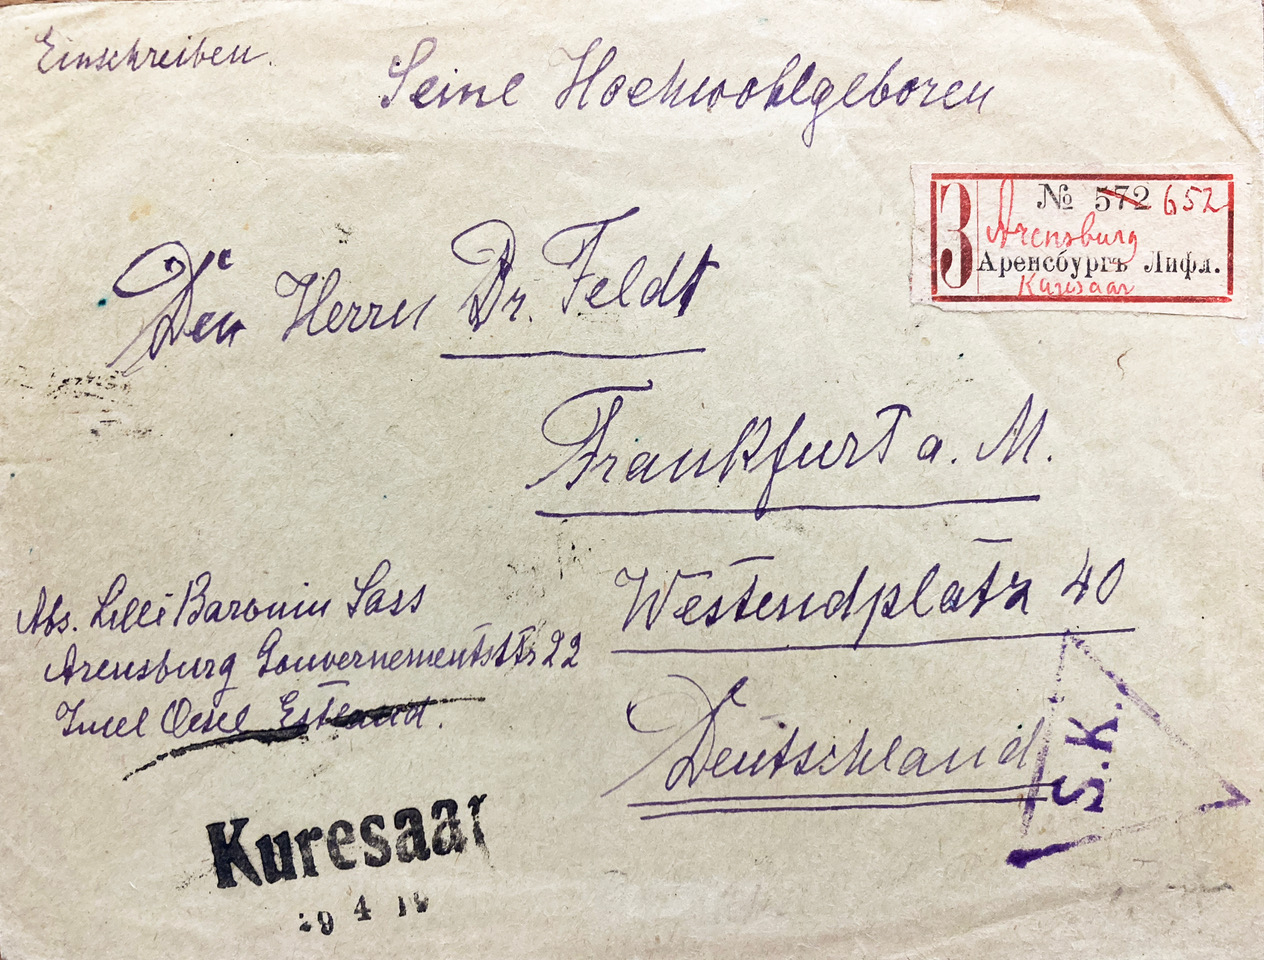 Einschreiben.
Seine Hochwohlgeboren
З
№ 572 652
Arensburg
Аренсбургъ Лифл.
Kuresaar
Den Herrn Dr. Feldt
Frankfurt a. M.
Westendplatz 40
Deutschland
Abs. Lilli Baronin Sass
Arensburg Gouvernementsstr 22
Insel Oesel Estland.
S.K.
Kuresaar
4